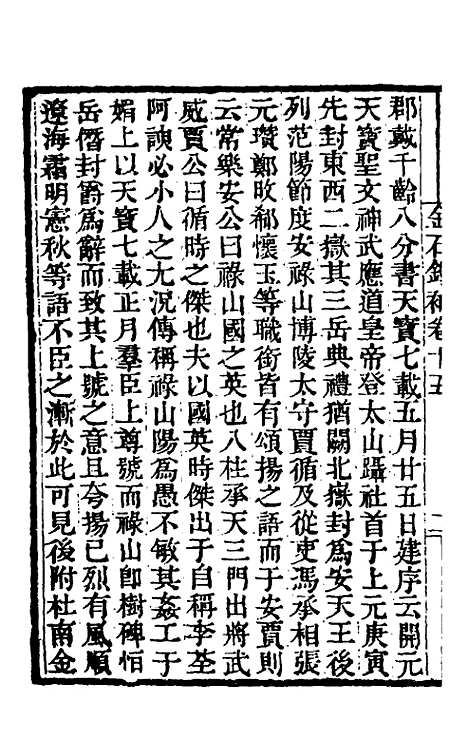 郡戴千齡八分書天寶七載五月廿五日建序云開元
天寶聖文神武應道皇帝登太山躡社首于上元庚寅
先封東西二嶽其三岳典禮猶闕北嶽封爲安天王後
列范陽節度安祿山博陵太守賈循及從吏馮承相張
元瓚鄭畋郗懷玉等職銜皆有頌揚之語而于安賈則
云常樂安公曰祿山國之英也八柱承天三門出將武
威賈公曰循時之傑也夫以國英時傑出于自稱李荃
阿諛必小人之尤況傳稱祿山陽爲愚不敏其姦工于
媚上以天寶七載正月羣臣上尊號而祿山卽樹碑恒
岳僭封爵爲辭而致其上號之意且夸揚已烈有風順
遼海霜明憲秋等語不臣之漸於此可見後附杜南金
金石錄補卷十五
二